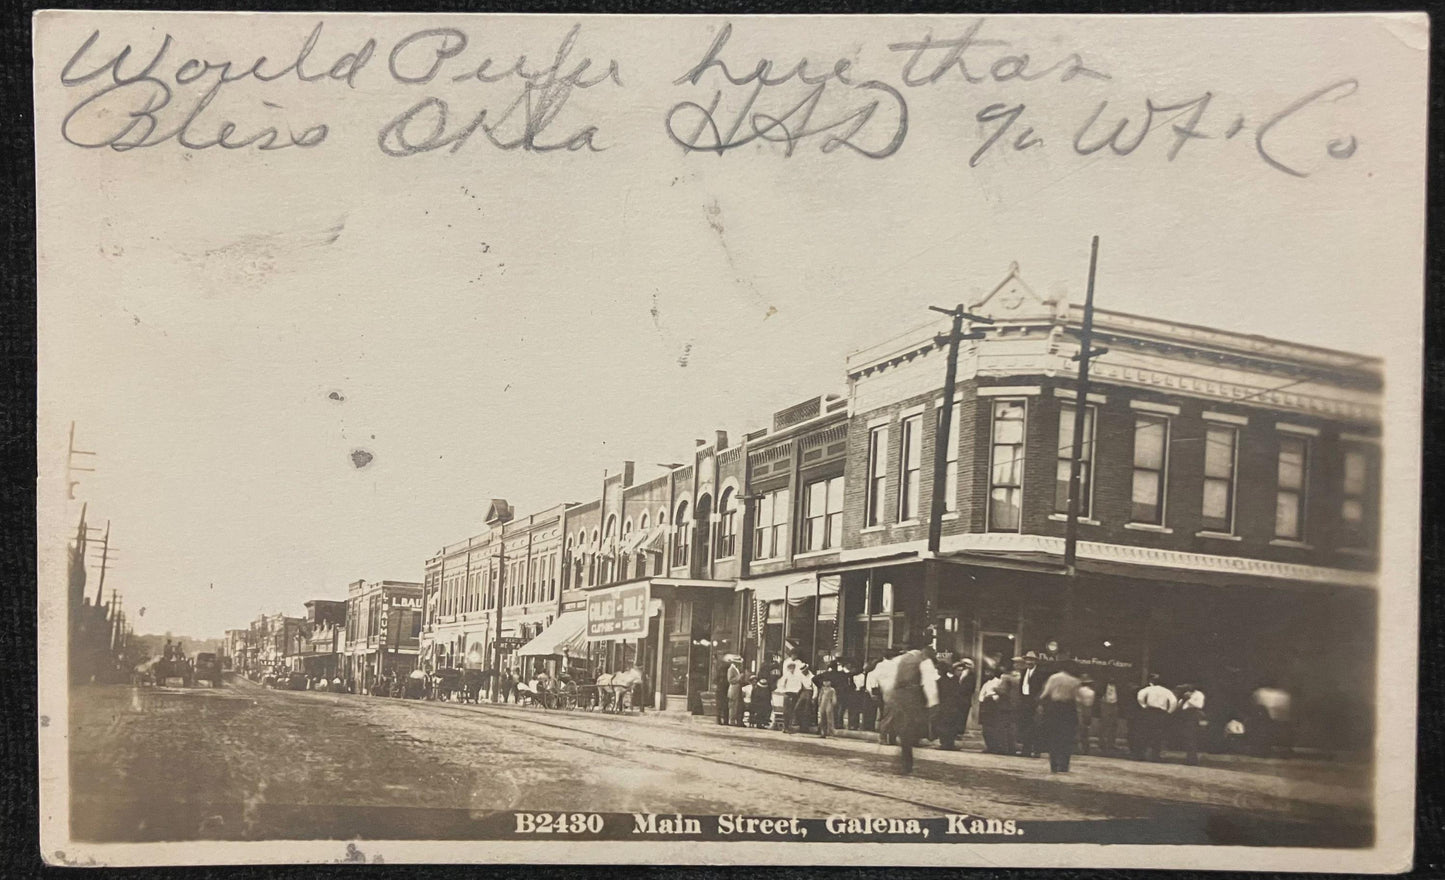 Would Prefer here than
Bliss Okla HAD % W F & Co
L. BAU
CLOTHING AND SHOES
B2430 Main Street, Galena, Kans.